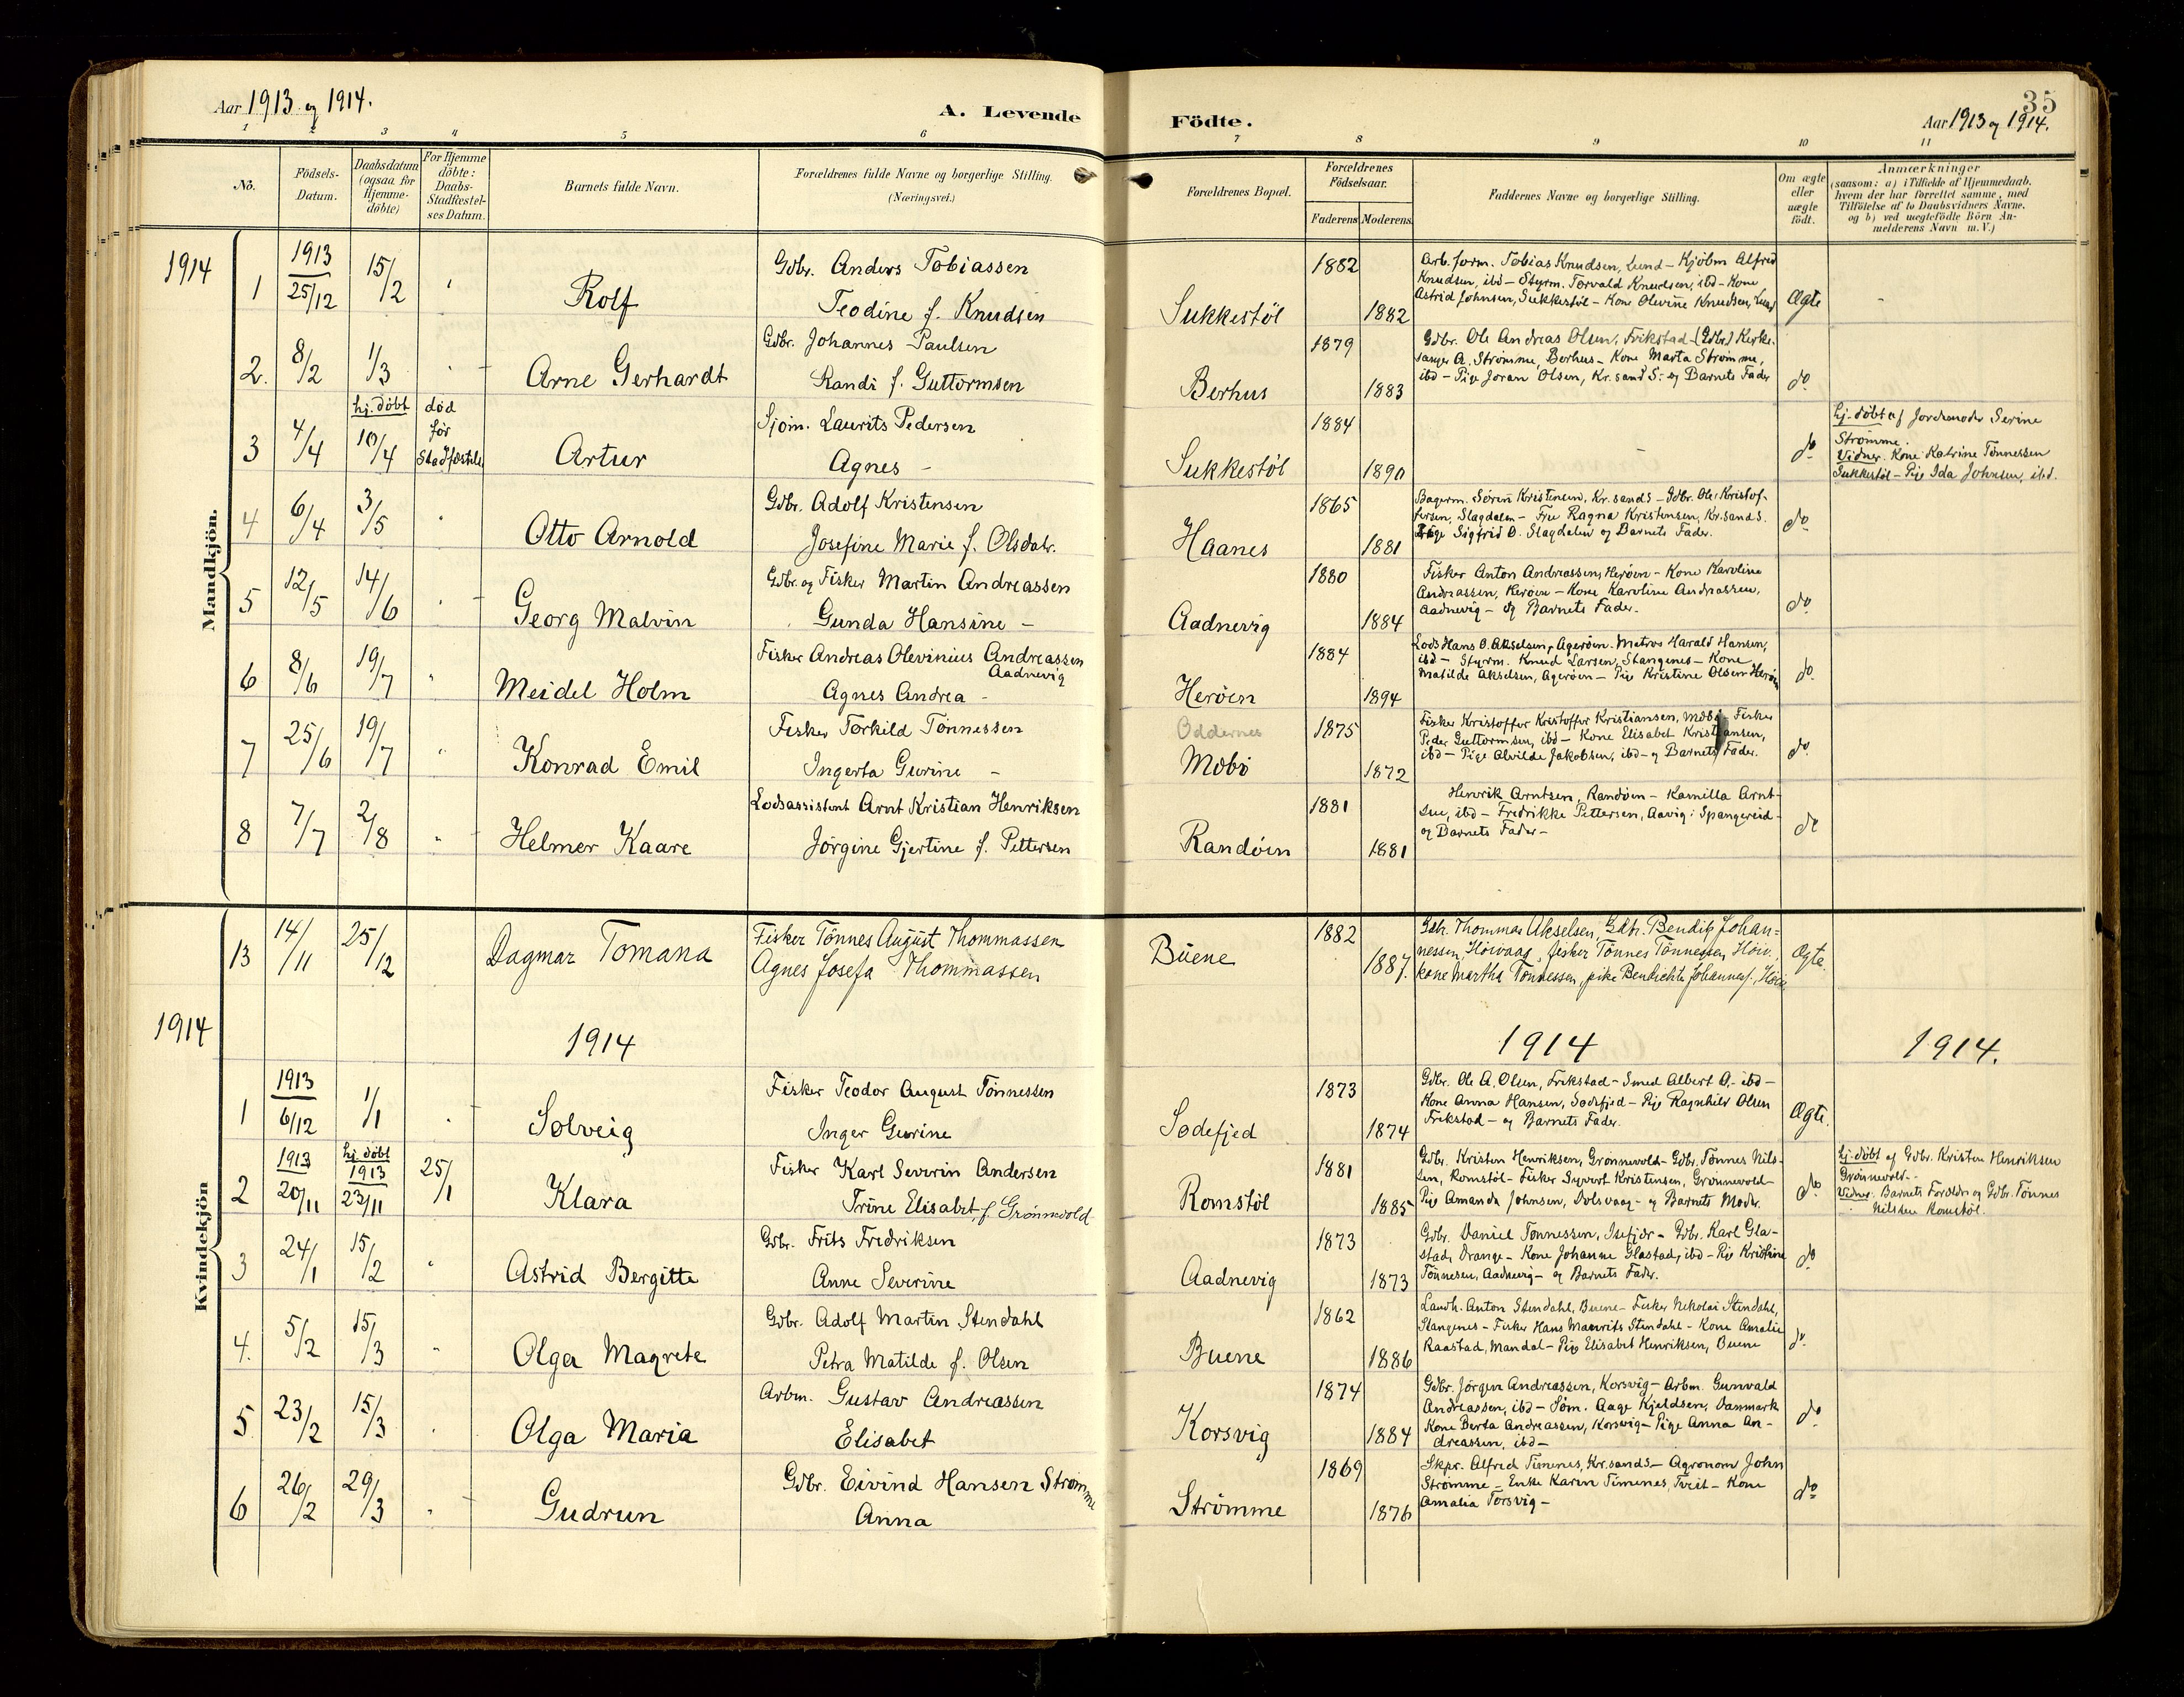 35
Aar 1913 og 1914.
A. Levende Födte.
Aar 1913 og 1914.
1 2 3 4 5 6 7 8 9 10 11
No.
Födsels-
Datum.
Daabsdatum
(ogsaa for
Hjemme-
döbte)
For Hjemme
döbte:
Daabs-
Stadfæstel-
ses Datum.
Barnets fulde Navn.
Forældrenes fulde Navne og borgerlige Stilling.
(Næringsvei.)
Forældrenes Bopæl.
Forældrenes
Födselsaar.
Faderens Moderens
Faddernes Navne og borgerlige Stilling.
Om ægte
eller
uægte
födt.
Anmærkninger
(saasom: a) i Tilfælde af Hjemmedaab.
hvem der har forrettet samme, med
Tilföielse af to Daabsvidners Navne.
og b) ved uægtefödte Börn An-
melderens Navn m. V.)
Mandkjön.
1914
1
1913
25/12
15/2
Rolf
Gdbr. Anders Tobiassen
Teodine f. Knudsen
Sukkestøl
1882
1882
Arb. form. Tobias Knudsen, Lund - Kjöbm Alfred
Knudsen, ibd - Styrm. Torvald Knudsen, ibd - Kone
Astrid Johnsen, Sukkestøl - Kone Olevine Knudsen, Lund
Ægte
2.
8/2
1/3
Arne Gerhardt
Gdbr. Johannes Paulsen
Randi f. Guttormsen
Berhus
1879
1883
Gdbr. Ole Andreas Olsen, Frikstad - (Gdbr) Kirke-
sanger A. Strømme, Berhus - Kone Marta Strømme,
ibd - Pige Joran Olsen, Kr.sand S. og Barnets Fader
do
3
4/4
hj. døbt
10/4
død
før
Stadfæstels
Artur
Sjøm. Laurits Pedersen
Agnes -
Sukkestøl
1884
1890
do
hj. døbt af Jordemoder Serine
Strømme.
Vidner. Kone Katrine Tønnessen
Sukkestøl - Pige Ida Johnsen, ibd.
4
6/4
3/5
Otto Arnold
Gdbr. Adolf Kristensen
Josefine Marie f. Olsdatr.
Haanes
1865
1881
Bagerm. Søren Kristensen, Kr.sand S - Gdbr. Ole Kristof-
fersen, Slagdalen - Fru Ragna Kristensen, Kr.sand S.
Pige Sigfrid O. Slagdalen og Barnets Fader.
do
5
12/5
14/6
Georg Malvin
Gdbr. og Fisker Martin Andreassen
Gunda Hansine -
Aadnevig
1880
1884
Fisker Anton Andreassen, Herøen - Kone Karoline
Andreassen, Herøen - Kone Karoline Andreassen,
Aadnevig - og Barnets Fader.
do
6
8/6
19/7
Meidel Holm
Fisker Andreas Olevinius Andreassen
Aadnevig
Agnes Andrea -
Herøen
1884
1894
Lods Hans O. Akselsen, Agerøen. Matros Harald Hansen,
ibd - Styrm. Knud Larsen, Stangenes - Kone
Matilde Akselsen, Agerøen - Pige Kristine Olsen Herøen
do
7
25/6
19/7
Konrad Emil
Fisker Torkild Tønnessen
Ingerta Gurine -
Oddernes
Møbø
1875
1872
Fisker Kristoffer Kristoffer Kristiansen, Møbø - Fisker
Peder Guttormsen, ibd - Kone Elisabet Kristiansen,
ibd - Pige Alvilde Jakobsen, ibd - og Barnets Fader.
do
8
7/7
2/8
Helmer Kaare
Lodsassistent Arnt Kristian Henriksen
Jörgine Gjertine f. Pettersen
Randöen
1881
1881
Henrik Arntsen, Randöen - Kamilla Arnt-
sen, ibd - Fredrikke Pettersen, Aavig i Spangereid -
og Barnets Fader -
do
Kvindekjön
13
14/11
25/12
Dagmar Tomana
Fisker Tönnes August Thommassen
Agnes Josefa Thommassen
Buene
1882
1887.
Gdbr. Thommas Akselsen, Gdbr. Bendik Johan-
nessen, Höivaag, fisker Tönnes Tönnessen, Höiv.,
kone Martha Tönnessen, pike Johannes.
Ægte.
1914
1914
1914
1914.
1
1913
6/12
1/1
Solveig
Fisker Teodor August Tønnessen
Inger Gurine
Sodefjed
1873
1874
Gdbr. Ole A. Olsen, Frikstad - Smed Albert O. - ibd -
Kone Anna Hansen, Sodefjed - Pige Ragnhild Olsen
Frikstad - og Barnets Fader.
Ægte.
2
1913
20/11
hj. døbt
1913
23/11
25/1
Klara
Fisker Karl Severin Andersen
Trine Elisabet f. Grønnevold
Romstøl
1881
1885
Gdbr. Kristen Henriksen, Grønnevold - Gdbr. Tønnes Nils-
sen, Romstøl - Fisker Syvert Kristensen, Grønnevold -
Pige Amanda Johnsen, Dolsvaag - og Barnets Moder.
do
hj. døbt af Gdbr. Kristen Henriksen
Grønnevold. -
Vidner. Barnets Forældre og Gdbr. Tønnes
Nilssen Romstøl.
3
24/1
15/2
Astrid Bergitte
Gdbr. Frits Fredriksen
Anne Severine
Aadnevig
1873
1873
Gdbr. Daniel Tønnessen, Isefjær - Gdbr. Karl Gla-
stad, Drange - Kone Johanne Glastad, ibd - Pige Kristine
Tønnesen, Aadnevig - og Barnets Fader.
do
4.
5/2
15/3
Olga Magrete
Gdbr. Adolf Martin Stendahl
Petra Matilde f. Olsen
Buene
1862
1886
Landh. Anton Stendahl, Buene - Fisker Nikolai Stendahl,
Stangenes - Fisker Hans Maurits Stendahl - Kone Amalie
Raastad, Mandal - Pige Elisabet Henriksen, Buene
do
5
23/2
15/3
Olga Maria
Arbm. Gustav Andreassen
Elisabet
Korsvig
1874
1884
Gdbr. Jörgen Andreassen, Korsvig - Arbm. Gunvald
Andreassen, ibd - Søm. Aage Kjeldsen, Danmark
Kone Berta Andreassen, Korsvig - Pige Anna An-
dreassen, ibd -
do
6
26/2
29/3
Gudrun
Gdbr. Eivind Hansen Strømme
Anna
Strømme
1869
1876
Skpr. Alfred Timenes, Kr.sand S - Agronom John
Strømme - Enke Karen Timenes, Tveit - Kone
Amalia Torsvig -
do